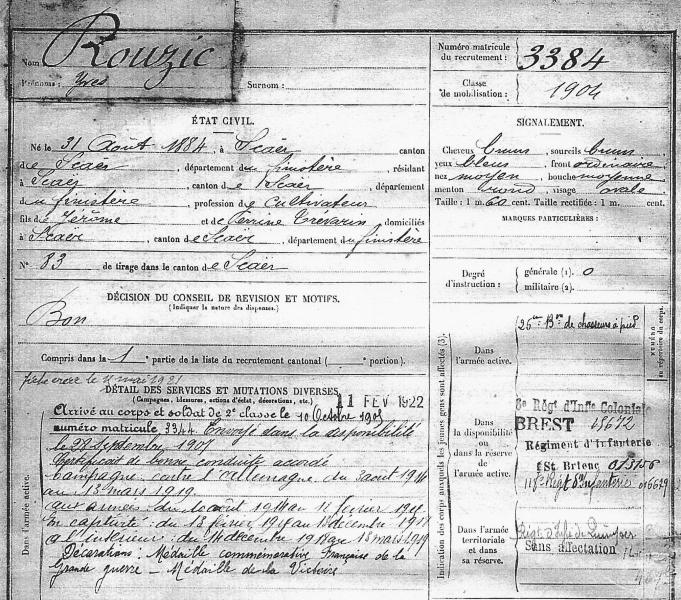 Nom Rouzic
Prénoms : Yves
Surnom :
Numéro matricule du recrutement : 3384
Classe de mobilisation : 1904
ÉTAT CIVIL.
Né le 31 Août 1884, à Scaër canton
de Scaër, département du finistère, résidant
à Scaër, canton de Scaër, département
du finistère, profession de Cultivateur
fils de Jérôme et de Perrine Trévarin, domiciliés
à Scaër, canton de Scaër, département du finistère
N° 83 de tirage dans le canton de Scaër
SIGNALEMENT.
Cheveux bruns sourcils bruns
yeux bleus, front ordinaire
nez moyen, bouche moyenne
menton rond, visage ovale
Taille : 1 m. 60 cent. Taille rectifiée : 1 m. cent.
MARQUES PARTICULIÈRES :
Degré d'instruction :
générale (1). 0
militaire (2).
DÉCISION DU CONSEIL DE REVISION ET MOTIFS.
(Indiquer la nature des dispenses.)
Bon
Compris dans la 1 partie de la liste du recrutement cantonal ( portion).
mai 1921
DÉTAIL DES SERVICES ET MUTATIONS DIVERSES
(Campagnes, blessures, actions d'éclat, décorations, etc.)
11 FEV 1922
Dans l'armée active.
Arrivé au corps et soldat de 2e classe le 10 Octobre 1905
numéro matricule 3344. Envoyé dans la disponibilité
le 28 Septembre 1907
Certificat de bonne conduite accordé
Campagne contre l'Allemagne du 3 août 1914
au 13 mars 1919.
aux armées : du 10 août 1914 au
En captivité : du 18 février au décembre
à l'intérieur du décembre 1918 au 13 mars 1919
Décorations : Médaille commémorative française de la
Grande guerre – Médaille de la Victoire
Indication des corps auxquels les jeunes gens sont affectés (3).
NUMÉRO au répertoire du corps.
Dans l'armée active.
Bon de chasseurs à pied
Dans la disponibilité ou dans la réserve de l'armée active.
Régt d'Infie Colonial
BREST
Régiment d'Infanterie
St Brieuc
118e Régt d'Infanterie
Dans l'armée territoriale et dans sa réserve.
Régt d'Infie de Quimper
Sans affectation